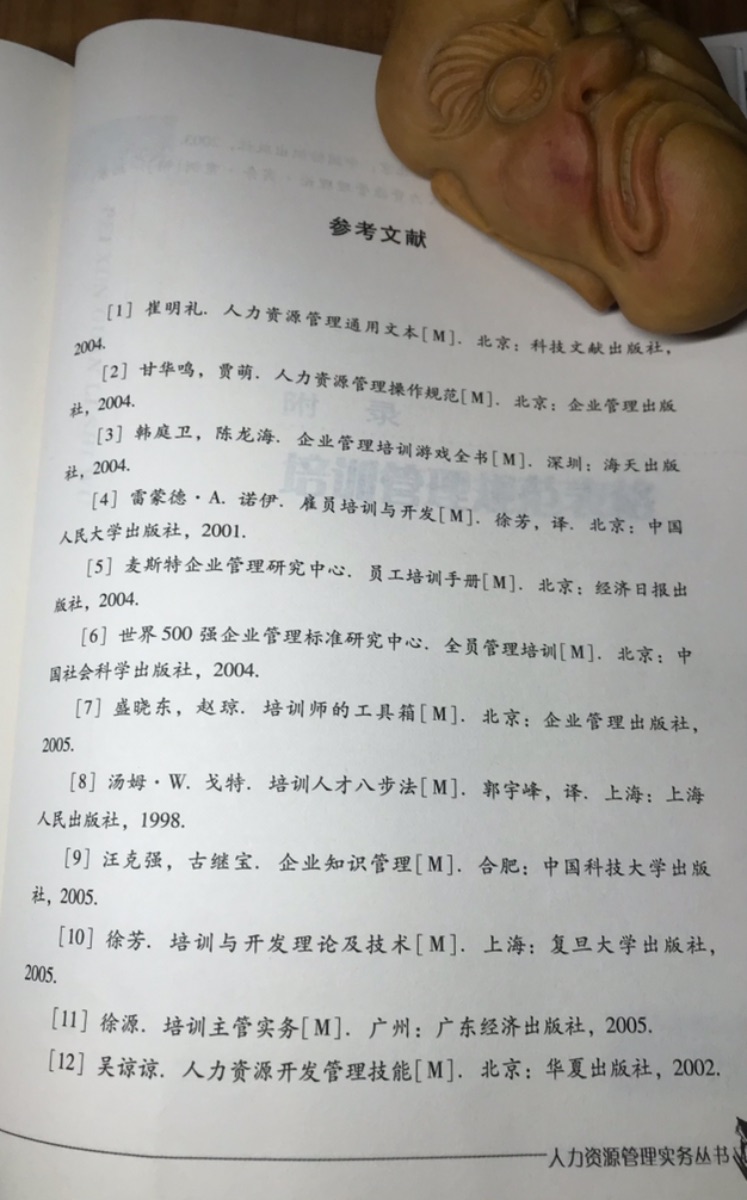 参考文献
[1] 崔明礼. 人力资源管理通用文本[M]. 北京：科技文献出版社，
2004.
[2] 甘华鸣，贾萌. 人力资源管理操作规范[M]. 北京：企业管理出版
社，2004.
[3] 韩庭卫，陈龙海. 企业管理培训游戏全书[M]. 深圳：海天出版
社，2004.
[4] 雷蒙德·A. 诺伊. 雇员培训与开发[M]. 徐芳，译. 北京：中国
人民大学出版社，2001.
[5] 麦斯特企业管理研究中心. 员工培训手册[M]. 北京：经济日报出
版社，2004.
[6] 世界500强企业管理标准研究中心. 全员管理培训[M]. 北京：中
国社会科学出版社，2004.
[7] 盛晓东，赵琼. 培训师的工具箱[M]. 北京：企业管理出版社，
2005.
[8] 汤姆·W. 戈特. 培训人才八步法[M]. 郭宇峰，译. 上海：上海
人民出版社，1998.
[9] 汪克强，古继宝. 企业知识管理[M]. 合肥：中国科技大学出版
社，2005.
[10] 徐芳. 培训与开发理论及技术[M]. 上海：复旦大学出版社，
2005.
[11] 徐源. 培训主管实务[M]. 广州：广东经济出版社，2005.
[12] 吴谅谅. 人力资源开发管理技能[M]. 北京：华夏出版社，2002.
人力资源管理实务丛书